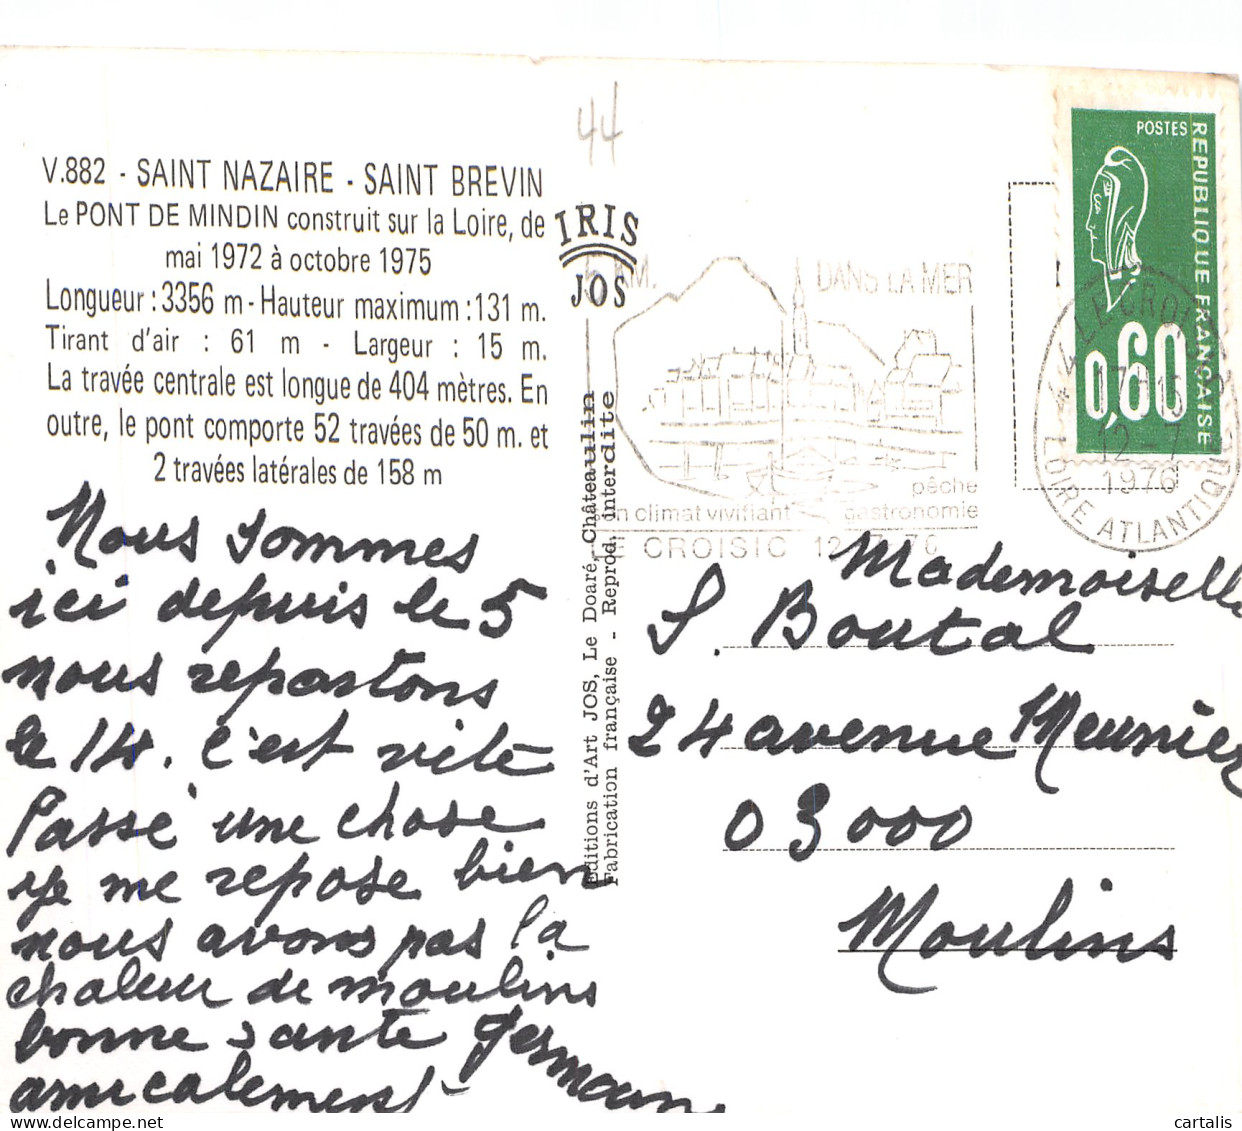 44
V.882 - SAINT NAZAIRE - SAINT BREVIN
Le PONT DE MINDIN construit sur la Loire, de
mai 1972 à octobre 1975
Longueur : 3356 m - Hauteur maximum : 131 m.
Tirant d'air : 61 m - Largeur : 15 m.
La travée centrale est longue de 404 mètres. En
outre, le pont comporte 52 travées de 50 m. et
2 travées latérales de 158 m
Nous sommes
ici depuis le 5
nous repartons
le 14. c'est vite
Passé une chose
je me repose bien
nous avons pas la
chaleur de moulins
bonne sante
amicalement
IRIS
JOS
Editions d'Art JOS, Le Doaré, Châteaulin
Fabrication française - Reprod. interdite
KM. DANS LA MER
pêche
son climat vivifiant gastronomie
LE CROISIC 12-7-76
POSTES
REPUBLIQUE FRANÇAISE
0,60
44 LE CROISIC
12-7
1976
LOIRE ATLANTIQUE
Mademoiselle
S. Boutal
24 avenue Meunier
03000
Moulins
cartalis